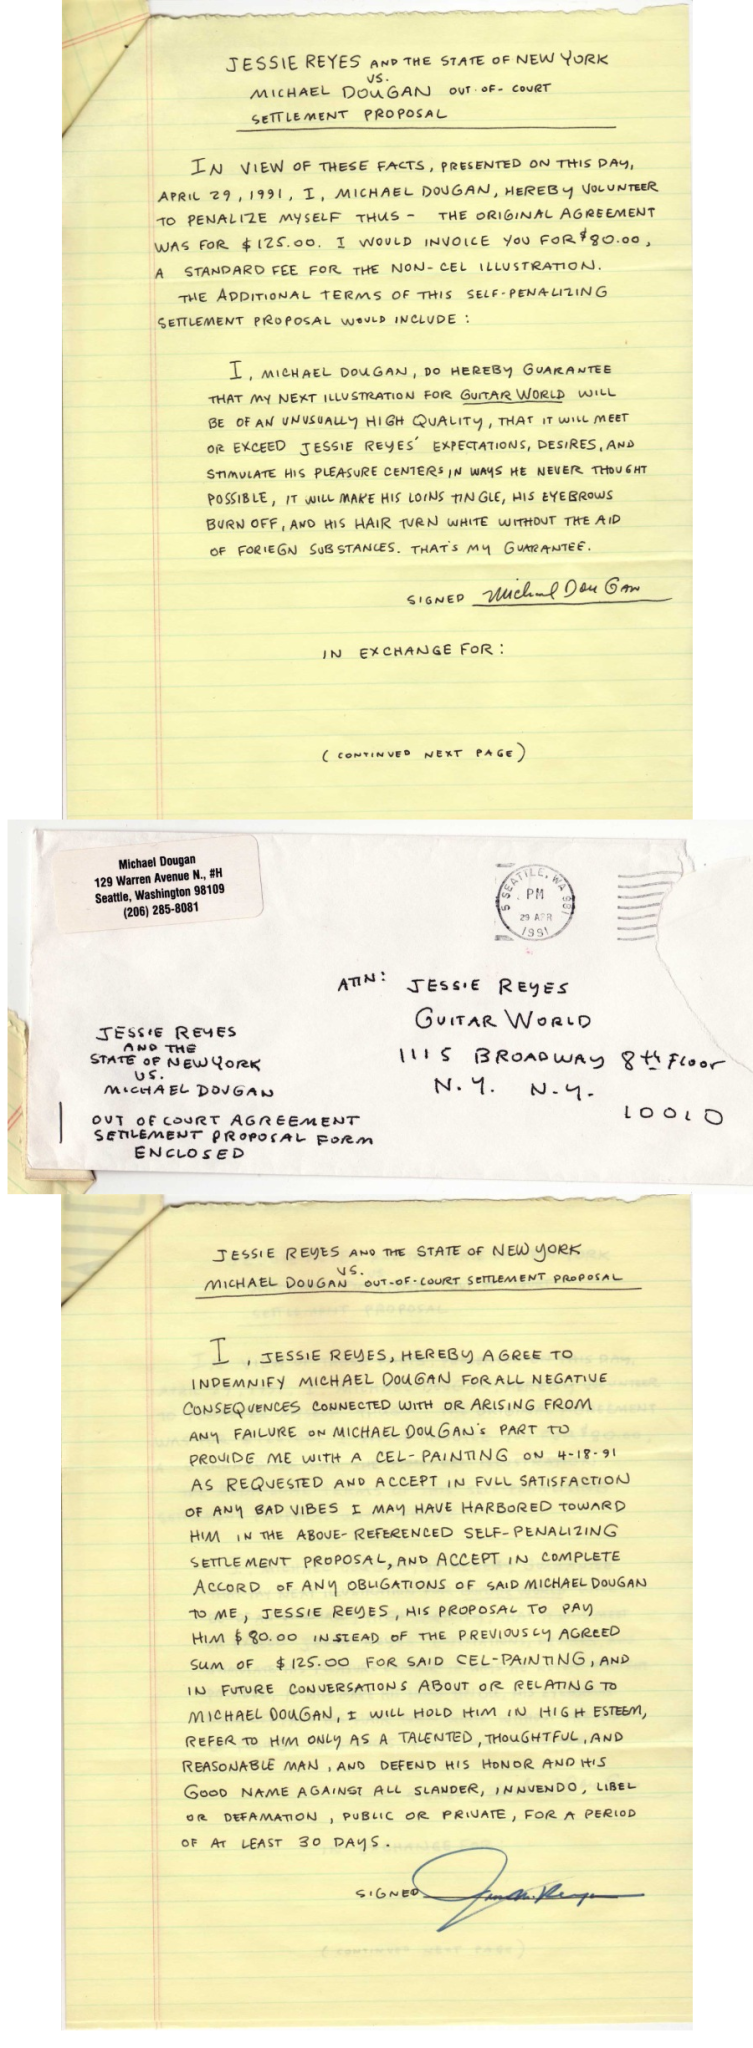 JESSIE REYES AND THE STATE OF NEW YORK
VS.
MICHAEL DOUGAN OUT-OF-COURT
SETTLEMENT PROPOSAL
IN VIEW OF THESE FACTS, PRESENTED ON THIS DAY,
APRIL 29, 1991, I, MICHAEL DOUGAN, HEREBY VOLUNTEER
TO PENALIZE MYSELF THUS - THE ORIGINAL AGREEMENT
WAS FOR $125.00. I WOULD INVOICE YOU FOR $80.00,
A STANDARD FEE FOR THE NON-CEL ILLUSTRATION.
THE ADDITIONAL TERMS OF THIS SELF-PENALIZING
SETTLEMENT PROPOSAL WOULD INCLUDE:
I, MICHAEL DOUGAN, DO HEREBY GUARANTEE
THAT MY NEXT ILLUSTRATION FOR GUITAR WORLD WILL
BE OF AN UNUSUALLY HIGH QUALITY, THAT IT WILL MEET
OR EXCEED JESSIE REYES' EXPECTATIONS, DESIRES, AND
STIMULATE HIS PLEASURE CENTERS IN WAYS HE NEVER THOUGHT
POSSIBLE, IT WILL MAKE HIS LOINS TINGLE, HIS EYEBROWS
BURN OFF, AND HIS HAIR TURN WHITE WITHOUT THE AID
OF FORIEGN SUBSTANCES. THAT'S MY GUARANTEE.
SIGNED Michael DouGan
IN EXCHANGE FOR:
(CONTINUED NEXT PAGE)
Michael Dougan
129 Warren Avenue N., #H
Seattle, Washington 98109
(206) 285-8081
SEATTLE, WA 981
PM
29 APR
1991
ATTN: JESSIE REYES
GUITAR WORLD
1115 BROADWAY 8th Floor
N.Y. N.Y.
10010
JESSIE REYES
AND THE
STATE OF NEW YORK
VS.
MICHAEL DOUGAN
OUT OF COURT AGREEMENT
SETTLEMENT PROPOSAL FORM
ENCLOSED
JESSIE REYES AND THE STATE OF NEW YORK
VS.
MICHAEL DOUGAN OUT-OF-COURT SETTLEMENT PROPOSAL
I, JESSIE REYES, HEREBY AGREE TO
INDEMNIFY MICHAEL DOUGAN FOR ALL NEGATIVE
CONSEQUENCES CONNECTED WITH OR ARISING FROM
ANY FAILURE ON MICHAEL DOUGAN'S PART TO
PROVIDE ME WITH A CEL-PAINTING ON 4-18-91
AS REQUESTED AND ACCEPT IN FULL SATISFACTION
OF ANY BAD VIBES I MAY HAVE HARBORED TOWARD
HIM IN THE ABOVE-REFERENCED SELF-PENALIZING
SETTLEMENT PROPOSAL, AND ACCEPT IN COMPLETE
ACCORD OF ANY OBLIGATIONS OF SAID MICHAEL DOUGAN
TO ME, JESSIE REYES, HIS PROPOSAL TO PAY
HIM $80.00 INSTEAD OF THE PREVIOUSLY AGREED
SUM OF $125.00 FOR SAID CEL-PAINTING, AND
IN FUTURE CONVERSATIONS ABOUT OR RELATING TO
MICHAEL DOUGAN, I WILL HOLD HIM IN HIGH ESTEEM,
REFER TO HIM ONLY AS A TALENTED, THOUGHTFUL, AND
REASONABLE MAN, AND DEFEND HIS HONOR AND HIS
GOOD NAME AGAINST ALL SLANDER, INNUENDO, LIBEL
OR DEFAMATION, PUBLIC OR PRIVATE, FOR A PERIOD
OF AT LEAST 30 DAYS.
SIGNED